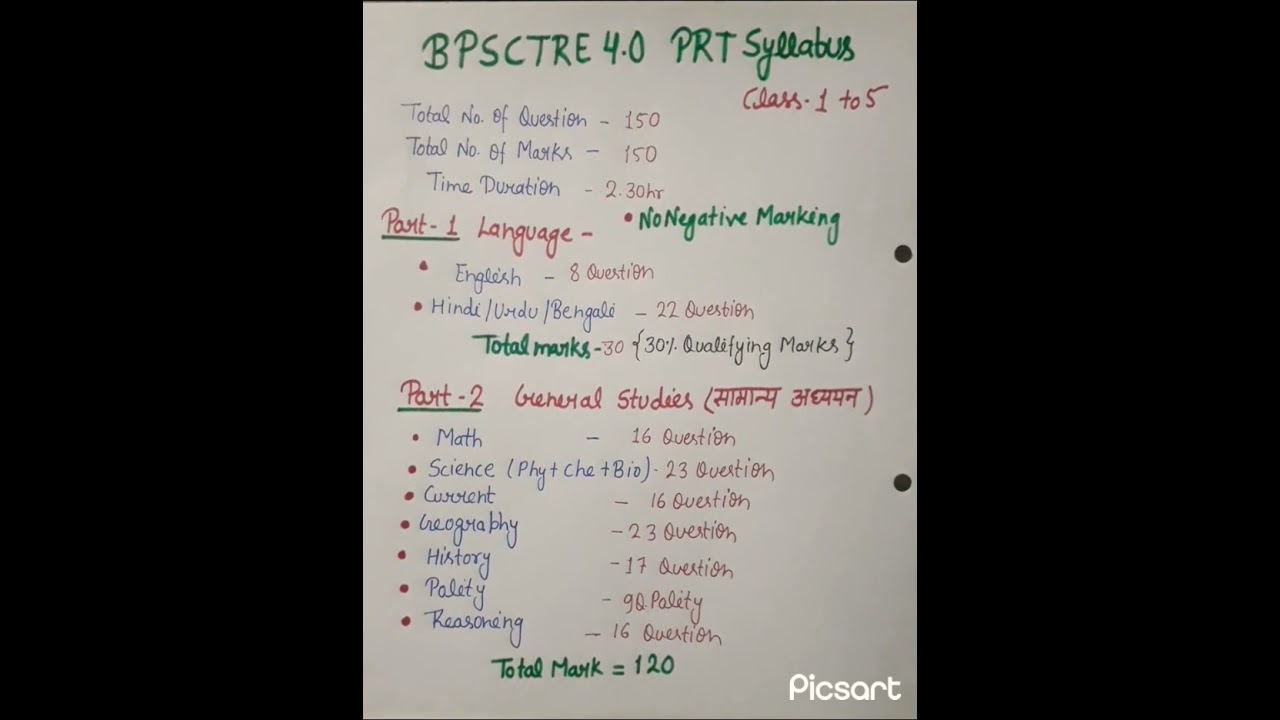 BPSCTRE 4.0 PRT Syllabus
Class. 1 to 5
Total No. of Question - 150
Total No. of Marks - 150
Time Duration - 2.30hr
• No Negative Marking
Part-1 Language -
• English - 8 Question
• Hindi/Urdu/Bengali - 22 Question
Total marks - 30 {30% Qualifying Marks}
Part-2 General Studies (सामान्य अध्ययन)
• Math - 16 Question
• Science (Phy+Che+Bio) - 23 Question
• Current - 16 Question
• Geography - 23 Question
• History - 17 Question
• Pality - 9Q.Pality
• Reasoning - 16 Question
Total Mark = 120
Picsart